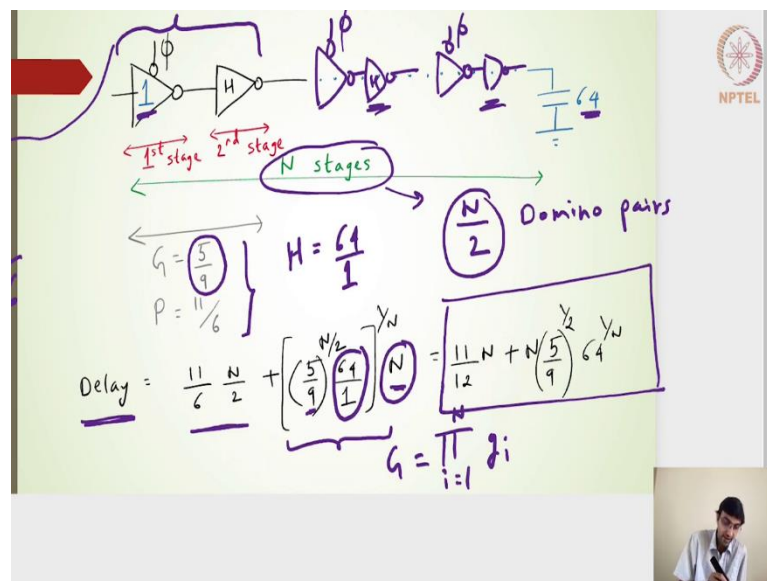 ϕ ϕ ϕ
1 H H 64
NPTEL
1st stage 2nd stage
N stages
N/2 Domino pairs
G = 5/9
P = 11/6
H = 64/1
Delay = 11/6 N/2 + [(5/9)^N/2 64/1]^1/N N = 11/12 N + N(5/9)^1/2 64^1/N
G = ∏ i=1 N gi